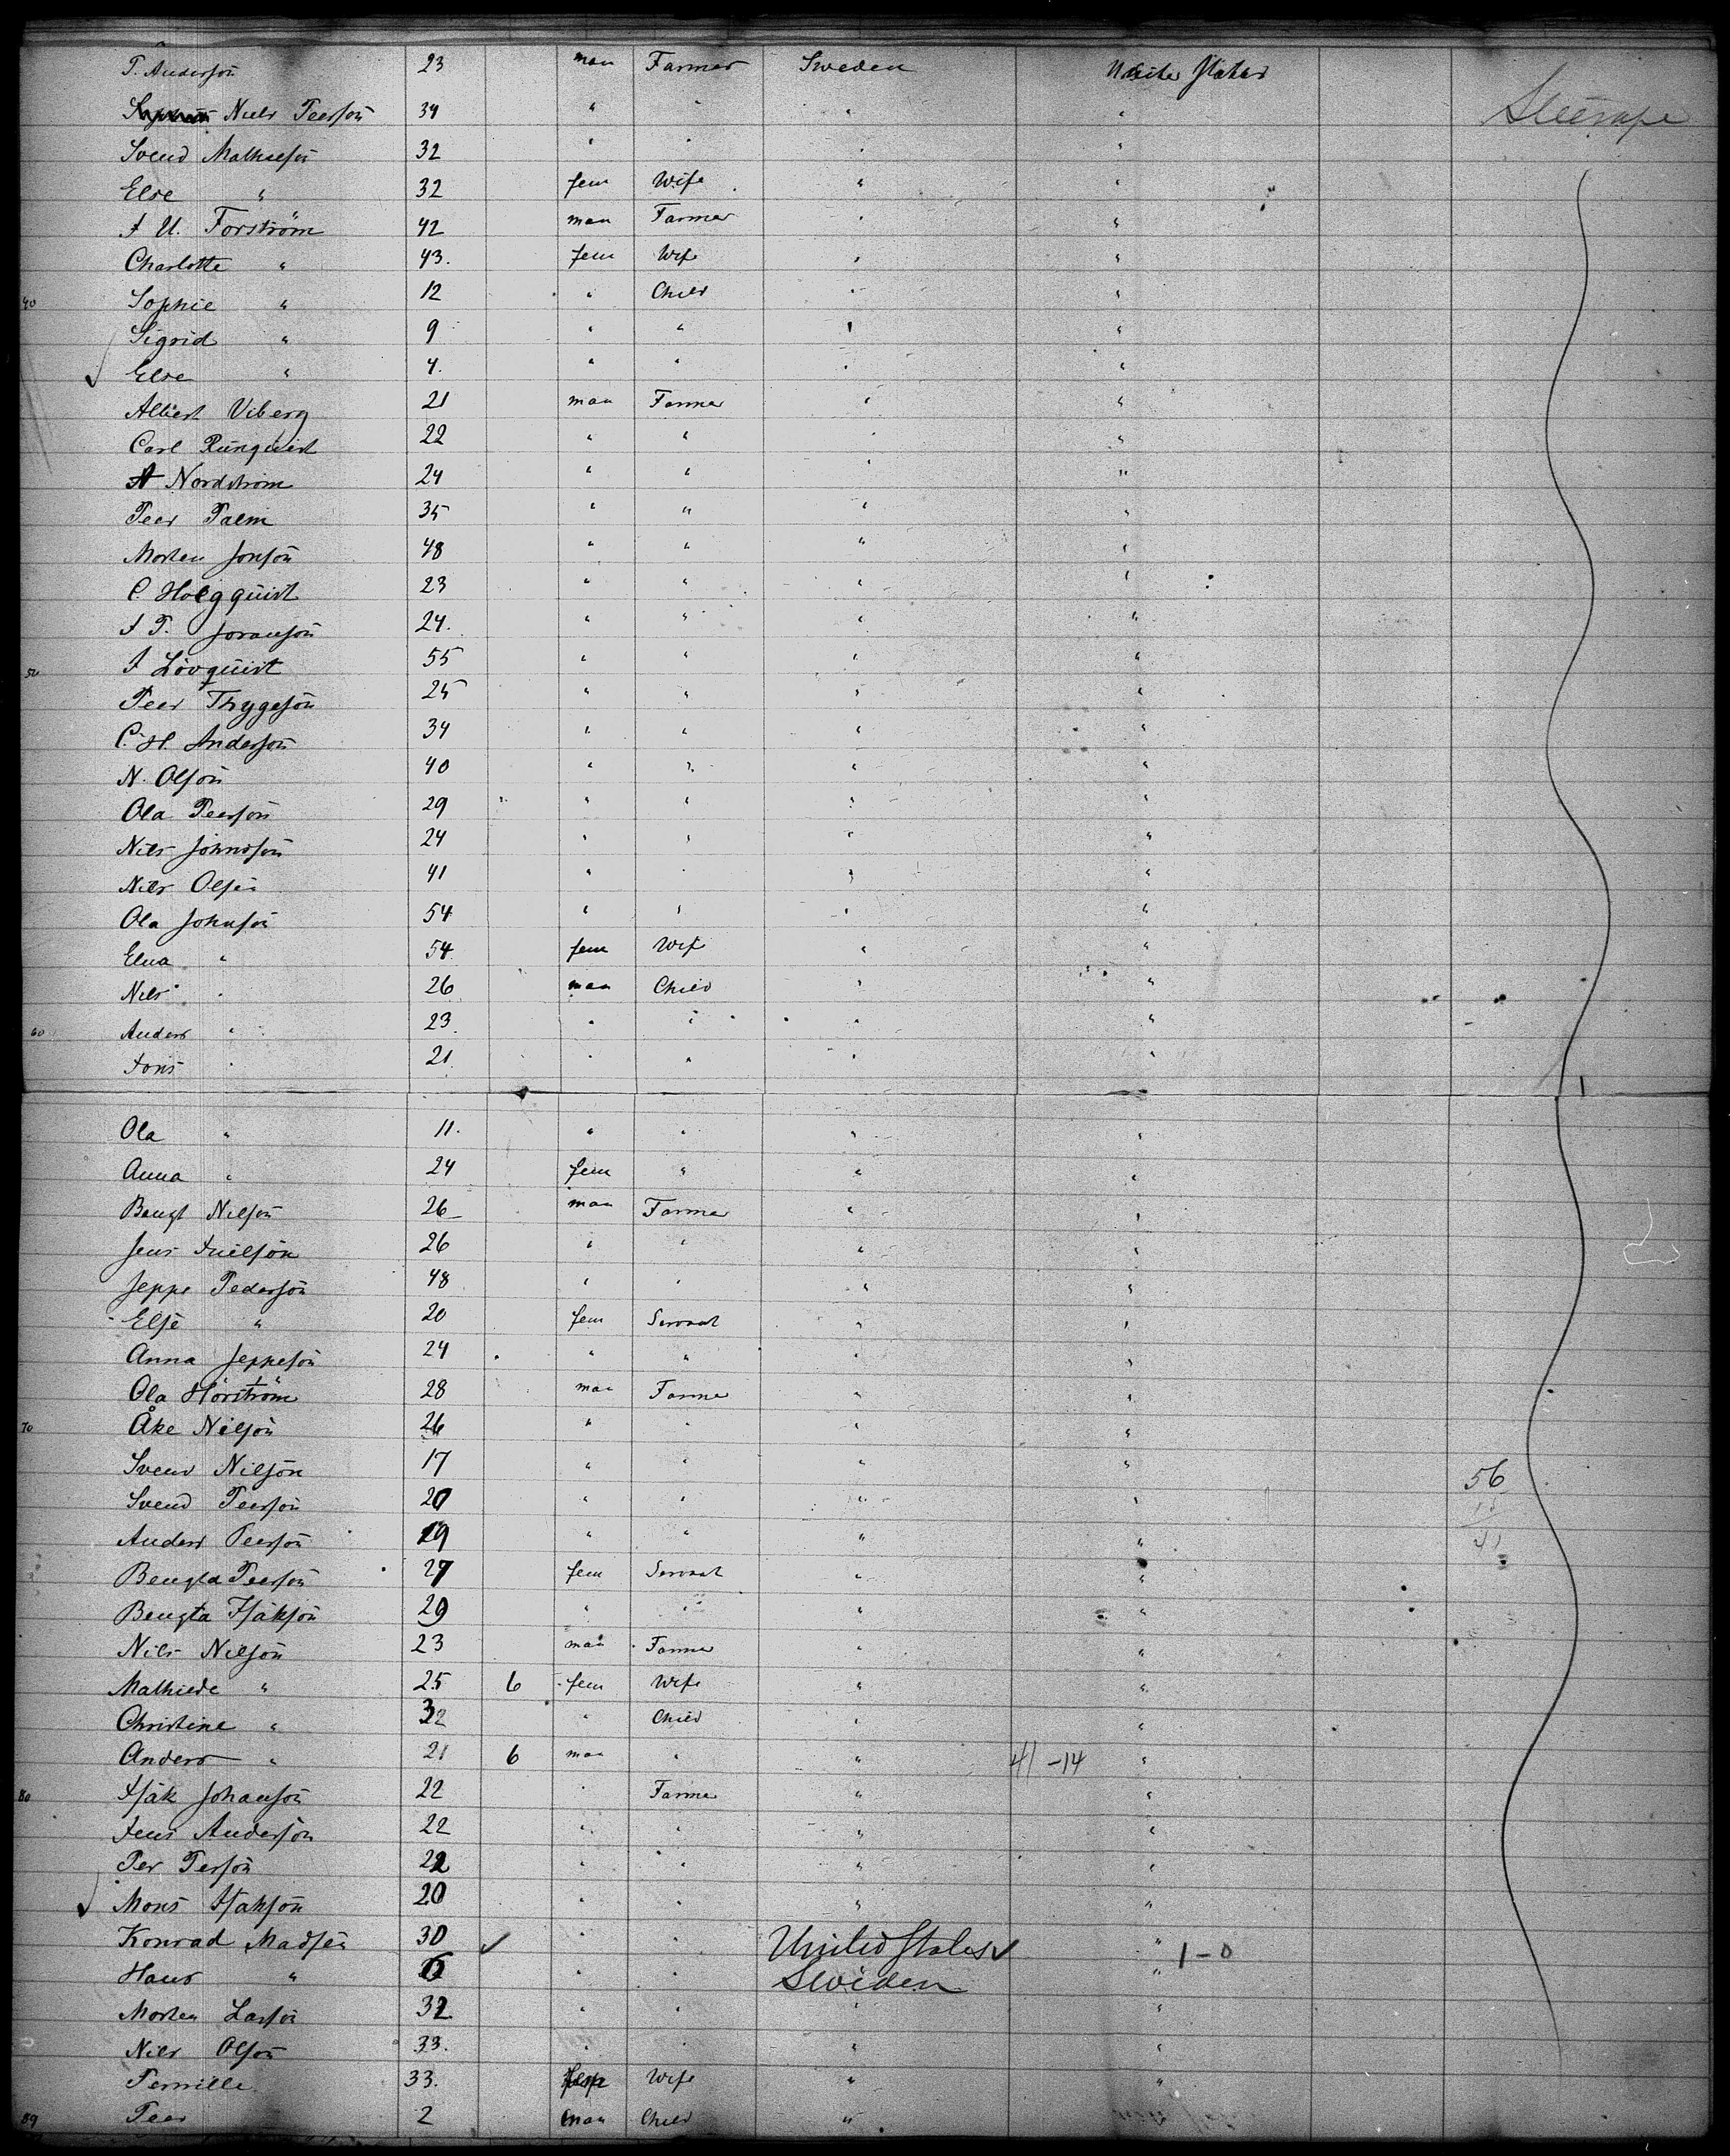 P. Anderson 23 man Farmer Sweden United States
Niels Peerson 34 " " " " Steerage
Svend Mathieson 32 " " " "
Else " 32 fem Wife " "
J U. Forström 42 man Farmer " "
Charlotte " 43. fem Wife " "
40 Sophie " 12 " Child " "
Sigrid " 9 " " " "
Else " 4. " " " "
Albert Viberg 21 man Farmer " "
Carl Runquist 22 " " " "
A Nordstrom 24 " " " "
Peer Palm 35 " " " "
Morten Jonson 48 " " " "
C. Holgquist 23 " " " "
J P. Joranson 24. " " " "
50 J Lövquist 55 " " " "
Peer Thygeson 25 " " " "
C. H. Anderson 34 " " " "
N. Olson 40 " " " "
Ola Peerson 29 " " " "
Nils Johnsson 24 " " " "
Nils Olsen 41 " " " "
Ola Johnson 54 " " " "
Elna " 54. fem Wife " "
Nils " 26 man Child " "
60 Anders " 23. " " " "
Jöns " 21. " " " "
Ola " 11. " " " "
Anna " 24 fem " " "
Bengt Nilson 26 man Farmer " "
Jens Nielson 26 " " " "
Jeppe Pederson 48 " " " "
Else " 20 fem Servant " "
Anna Jeppeson 24 " " " "
Ola Hörström 28 man Farmer " "
70 Åke Nilson 26 " " " "
Svend Nilson 17 " " " " 56
Svend Peerson 20 " " " " 15
Anders Peerson 19 " " " " 41
Bengta Peerson 27 fem Servant " "
Bengta Isakson 29 " " " "
Nils Nilson 23 man Farmer " "
Mathilde " 25 6 fem Wife " "
Christine " 32 " Child " "
Anders " 21 6 man " " 41-14 "
80 Isak Johanson 22 " Farmer " "
Jens Anderson 22 " " " "
Per Person 22 " " " "
Mons Isakson 20 " " " "
Konrad Madsen 30 " " United States " 1-0
Hans " " " Sweden "
Morten Larson 32 " " " "
Nils Olson 33. " " " "
Pernille 33. fem Wife " "
89 Peer 2 man Child "